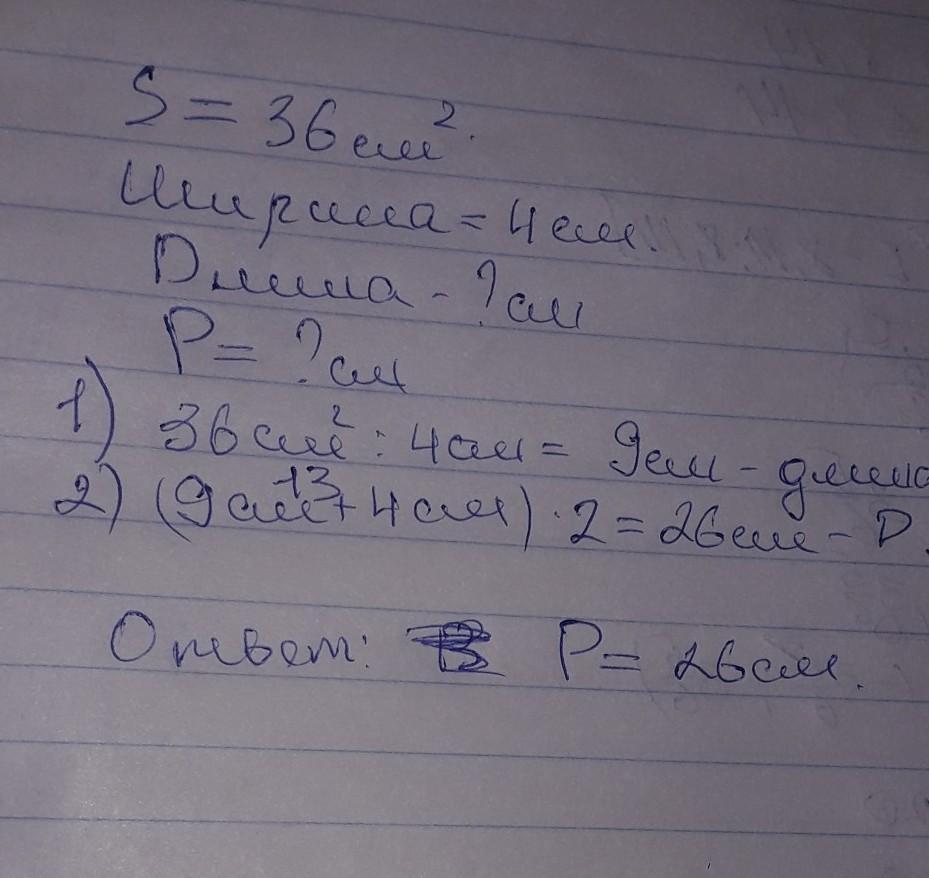 S = 36 см².
Ширина = 4 см.
Длина - ? см
P = ? см
1) 36 см² : 4 см = 9 см - длина
13
2) (9 см + 4 см) · 2 = 26 см - P.
Ответ: P = 26 см.